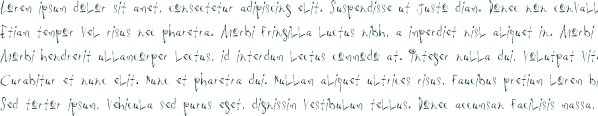 Lorem ipsum dolor sit amet, consectetur adipiscing elit. Suspendisse ut justo diam. Donec non convall
Etiam tempor vel risus nec pharetra. Morbi fringilla luctus nibh, a imperdiet nisl aliquet in. Morbi
Morbi hendrerit ullamcorper lectus, id interdum lectus commodo at. Integer nulla dui, volutpat vit
Curabitur et nunc elit. Nunc et pharetra dui. Nullam aliquet ultrices risus, faucibus pretium lorem b
Sed tortor ipsum, vehicula sed purus eget, dignissim vestibulum tellus. Donec accumsan facilisis massa,